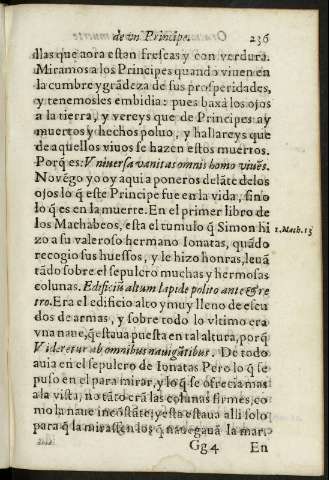 de vn Principe. 236
llas que aora estan frescas y con verdura.
Miramos a los Principes quando viuen en
la cumbre y grãdeza de sus prosperidades,
y tenemosles embidia: pues baxà los ojos
a la tierra, y vereys que de Principes ay
muertos y hechos poluo, y hallareys que
de aquellos viuos se hazen estos muertos.
Porq̃ es: Vniuersa vanitas omnis homo viuẽs.
No vẽgo yo oy aqui a poneros delãte de los
ojos lo q̃ este Principe fue en la vida, sino
lo q̃ es en la muerte. En el primer libro de
los Machabeos, esta el tumulo q̃ Simon hi
zo a su valeroso hermano Ionatas, quãdo
recogio sus huessos, y le hizo honras, leuã
tãdo sobre el sepulcro muchas y hermosas
colunas. Edificiũ altum lapide polito ante & re
tro. Era el edificio alto y muy lleno de escu
dos de armas, y sobre todo lo vltimo era
vna naue, q̃ estaua puesta en tal altura, porq̃
Videretur ab omnibus nauigãtibus. De todo
auia en el sepulcro de Ionatas Pero lo q̃ se
puso en el para mirar, y lo q̃ se ofrecia mas
a la vista, no tãto erã las colunas firmes, co
mo la naue incõstãte: y esto estaua alli solo
para q̃ la mirassen los q̃ nauegauã la mar.
1. Mach. 13
Gg 4 En